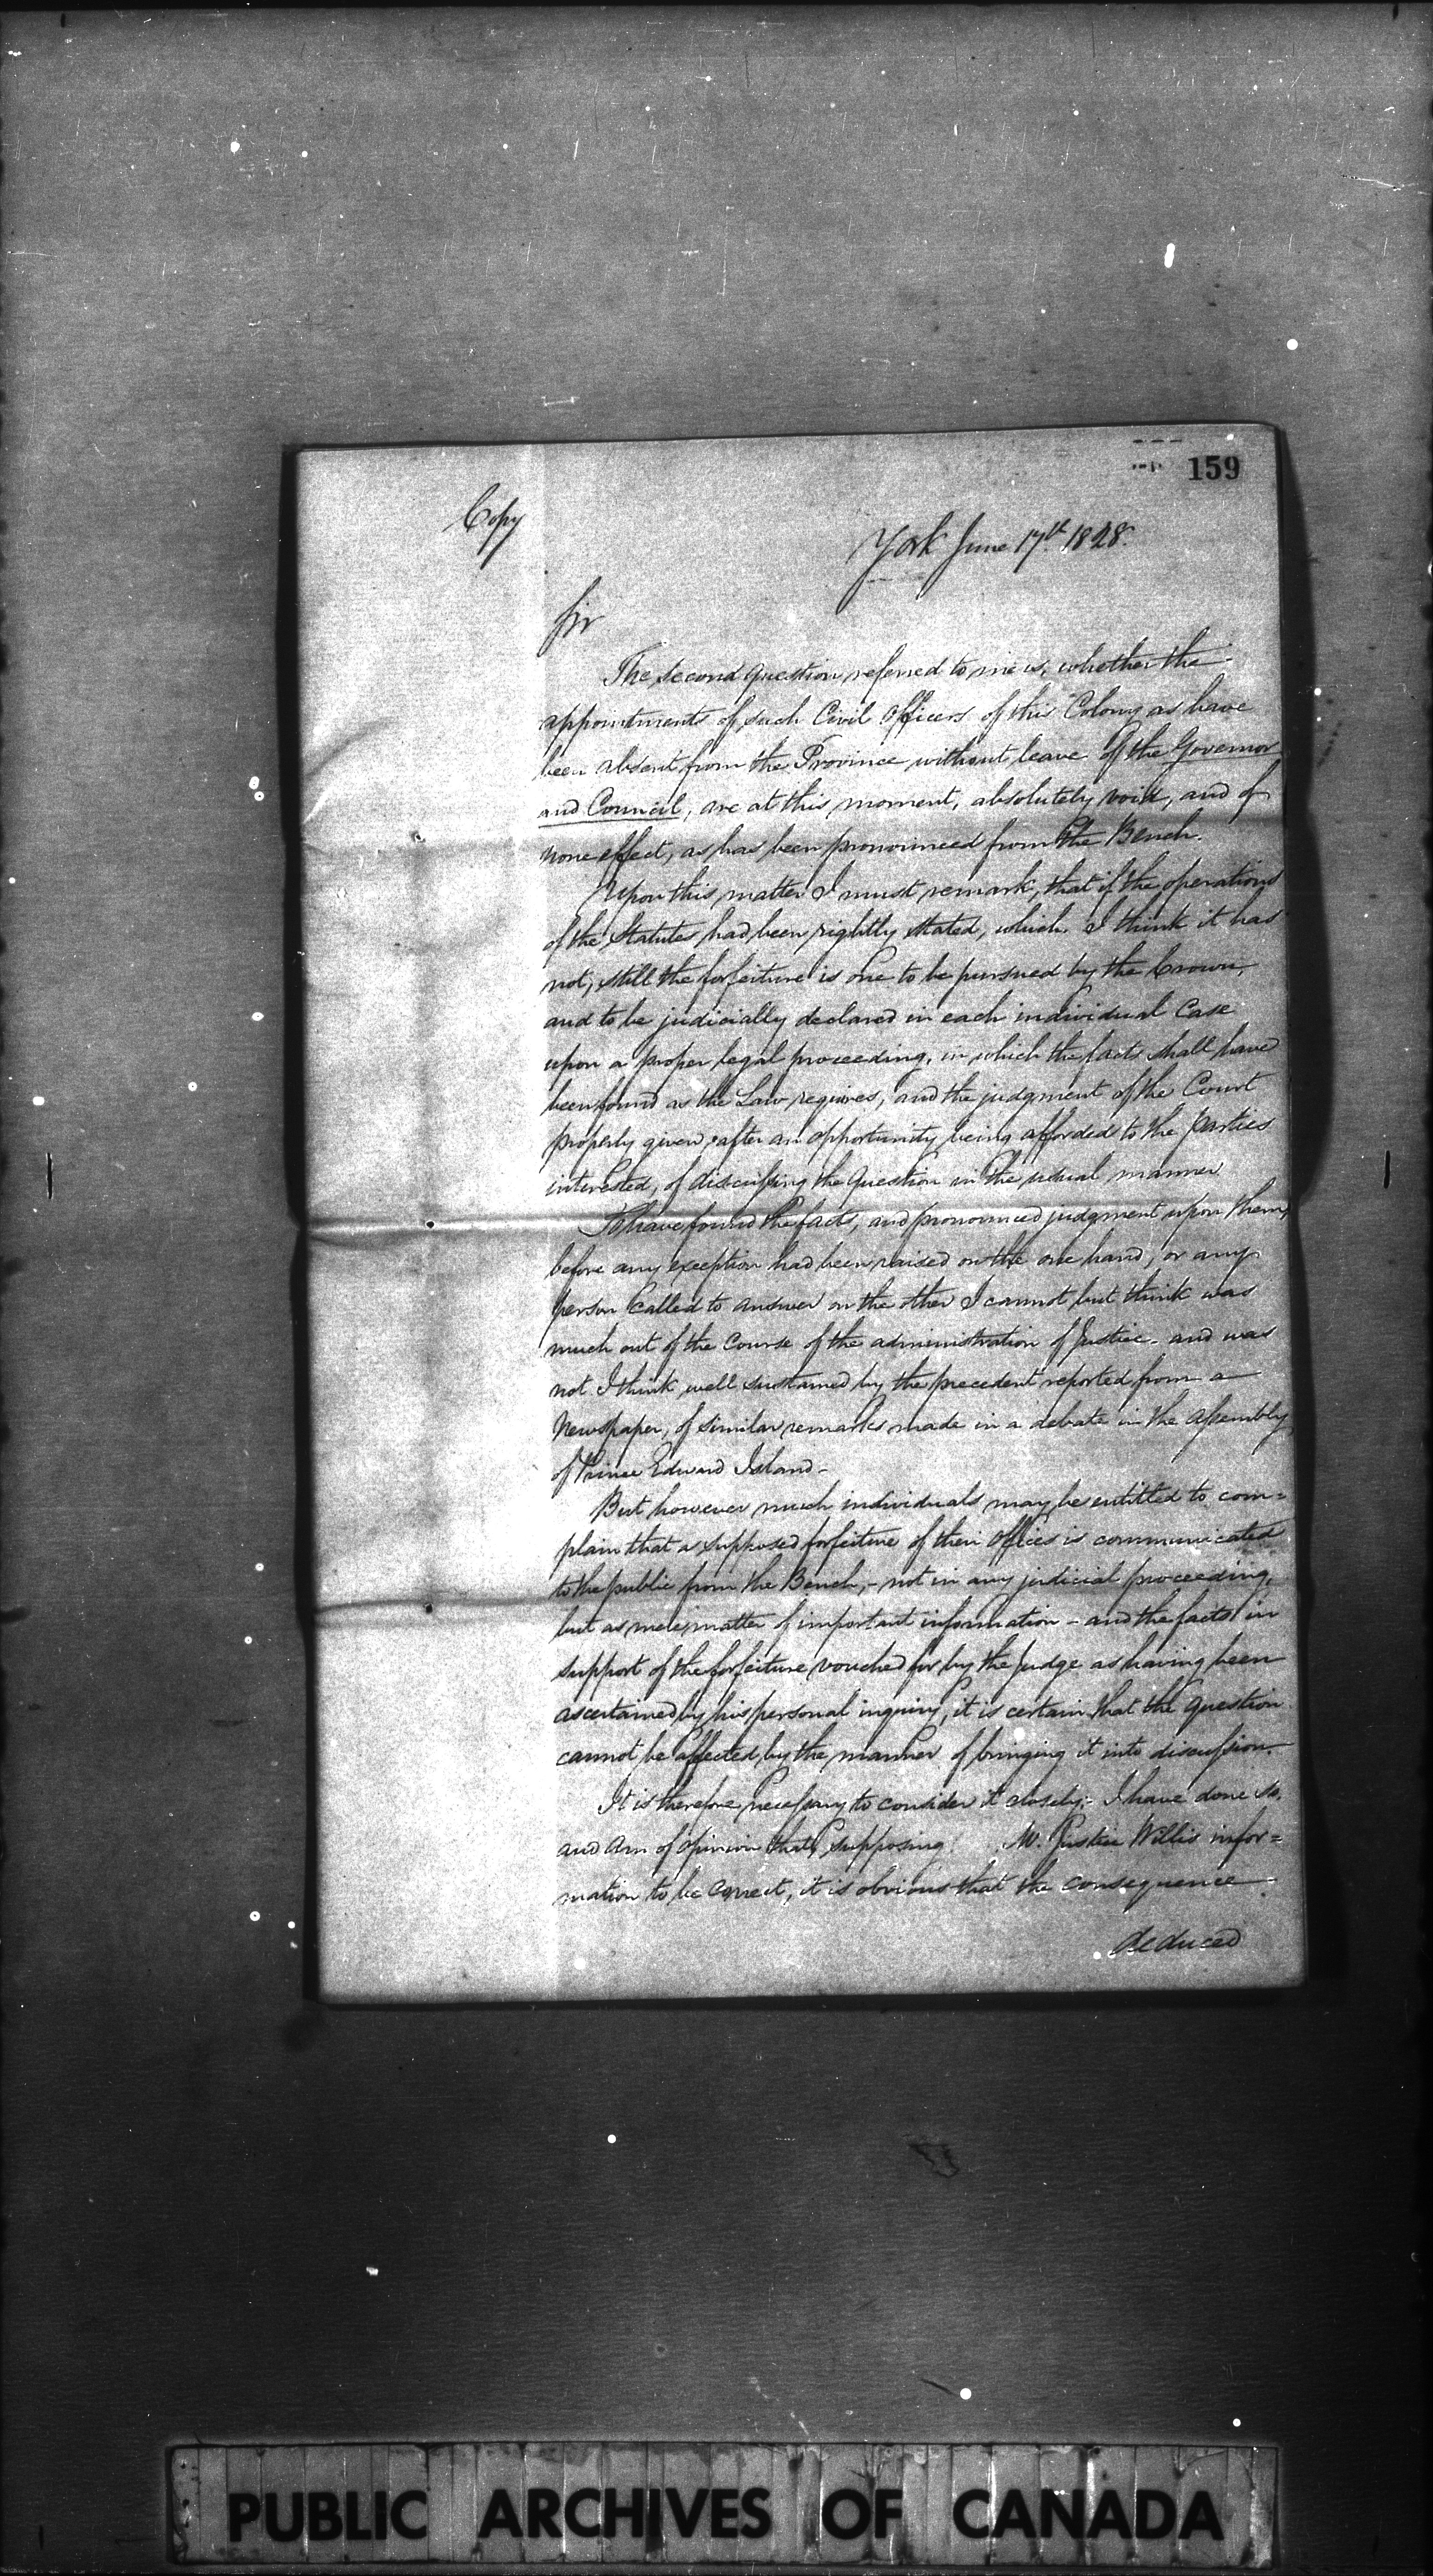 159
Copy
York June 17th 1828.
Sir
The second question referred to me is, whether the
appointments of such Civil Officers of this Colony as have
been absent from the Province without leave of the Governor
and Council, are at this moment, absolutely void, and of
none effect, as has been pronounced from the Bench.
Upon this matter I must remark, that if the operations
of the Statutes had been rightly stated, which I think it has
not, still the forfeiture is one to be pursued by the Crown,
and to be judicially declared in each individual Case
upon a proper legal proceeding, in which the facts shall have
been found as the Law requires, and the judgment of the Court
properly given, after an opportunity being afforded to the parties
interested, of discussing the question in the usual manner
To have found the facts, and pronounced judgment upon them,
before any exception had been raised on the one hand, or any
person called to answer on the other I cannot but think was
much out of the course of the administration of Justice - and was
not I think well sustained by the precedent reported from a
Newspaper, of similar remarks made in a debate in the Assembly
of Prince Edward Island -
But however much individuals may be entitled to com=
plain that a supposed forfeiture of their offices is communicated
to the public from the Bench, - not in any judicial proceeding,
but as mere matter of important information - and the facts in
support of the forfeiture vouched for by the Judge as having been
ascertained by his personal inquiry, it is certain that the question
cannot be affected by the manner of bringing it into discussion.
It is therefore necessary to consider it closely; - I have done so,
and am of opinion that, supposing Mr. Justice Willis infor=
mation to be correct, it is obvious that the consequence
deduced
PUBLIC ARCHIVES OF CANADA